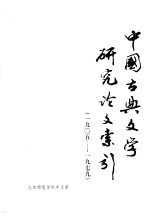 中國古典文学
研究论文索引
（一九〇五——一九七九）